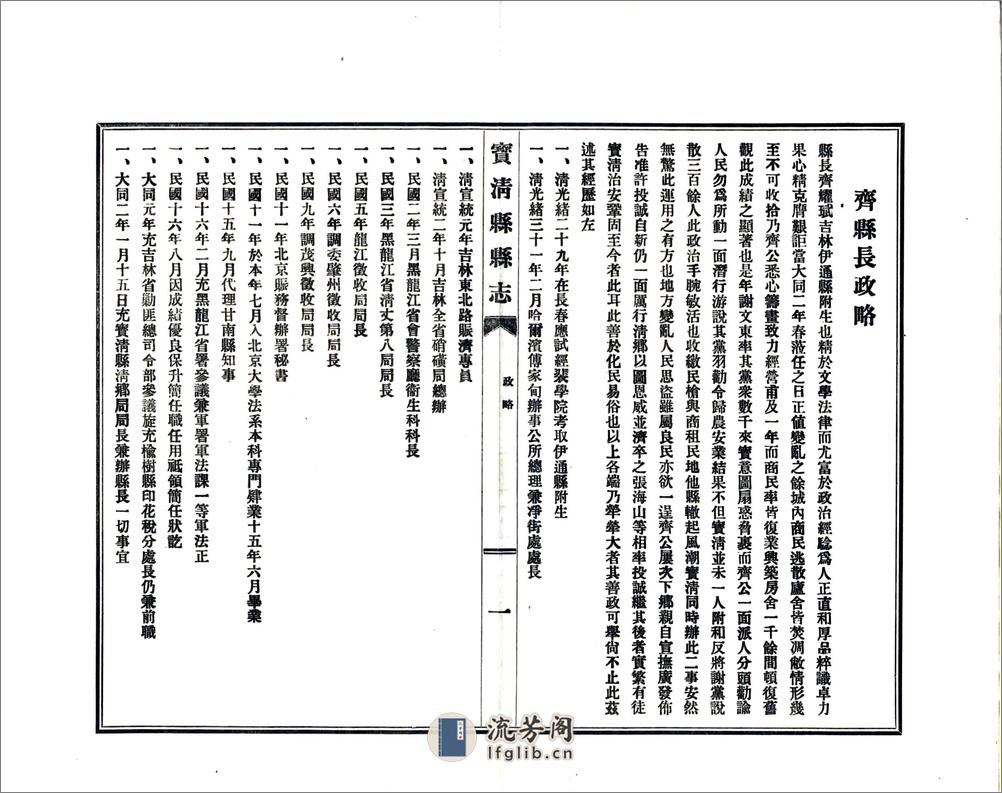 齊縣長政略
縣長齊耀珷吉林伊通縣附生也精於文學法律而尤富於政治經騐爲人正直和厚品粹識卓力
果心精克膺艱詎當大同二年春蒞任之日正值變亂之餘城內商民逃散廬舍皆焚凋敝情形幾
至不可收拾乃齊公悉心籌畫致力經營甫及一年而商民率皆復業興築房舍一千餘間頓復舊
觀此成績之顯著也是年謝文東率其黨衆數千來寶意圖扇惑脅裹而齊公一面派人分頭勸諭
人民勿爲所動一面潛行游說其黨羽勸令歸農安業結果不但寶清並未一人附和反將謝黨說
散三百餘人此政治手腕敏活也收繳民槍與商租民地他縣轍起風潮寶清同時辦此二事安然
無驚此運用之有方也地方變亂人民思盜雖屬良民亦欲一逞齊公屢次下鄉親自宣撫廣發佈
告准許投誠自新仍一面厲行清鄉以圖恩威並濟卒之張海山等相率投誠繼其後者實繁有徒
寶清治安鞏固至今者此耳此善於化民易俗也以上各端乃犖犖大者其善政可舉尙不止此茲
述其經歷如左
一、清光緒二十九年在長春應試經裴學院考取伊通縣附生
一、清光緒三十一年二月哈爾濱傅家甸辦事公所總理兼凈街處處長
寶清縣縣志
政略
一
一、清宣統元年吉林東北路賑濟專員
一、清宣統二年十月吉林全省硝磺局總辦
一、民國二年三月黑龍江省會警察廳衞生科科長
一、民國三年黑龍江省清丈第八局局長
一、民國五年龍江徵收局局長
一、民國六年調委肇州徵收局局長
一、民國九年調茂興徵收局局長
一、民國十一年北京賑務督辦署秘書
一、民國十一年於本年七月入北京大學法系本科專門肆業十五年六月畢業
一、民國十五年九月代理甘南縣知事
一、民國十六年二月充黑龍江省署參議兼軍署軍法課一等軍法正
一、民國十六年八月因成績優良保升簡任職任用祗領簡任狀訖
一、大同元年充吉林省勦匪總司令部參議旋充榆樹縣印花稅分處長仍兼前職
一、大同二年一月十五日充寶清縣清鄉局局長兼辦縣長一切事宜
流芳阁
lfglib.cn